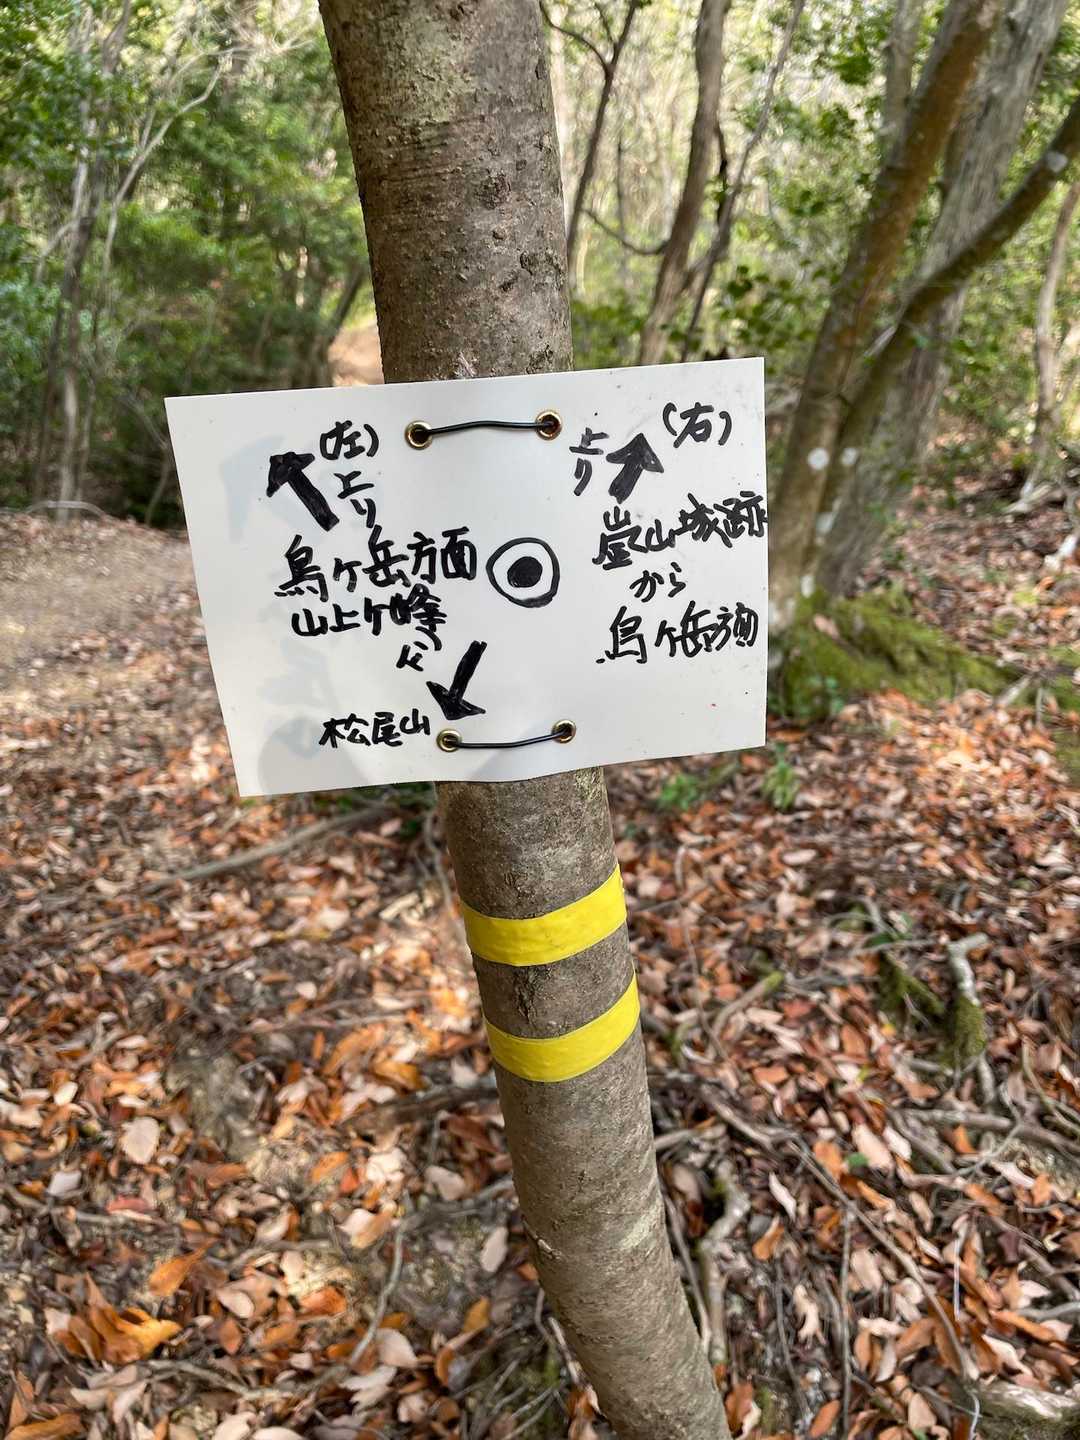 (左)
上り
烏ケ岳方面
山上ケ峰
松尾山
(右)
上り
嵐山城跡
から
烏ケ岳方面